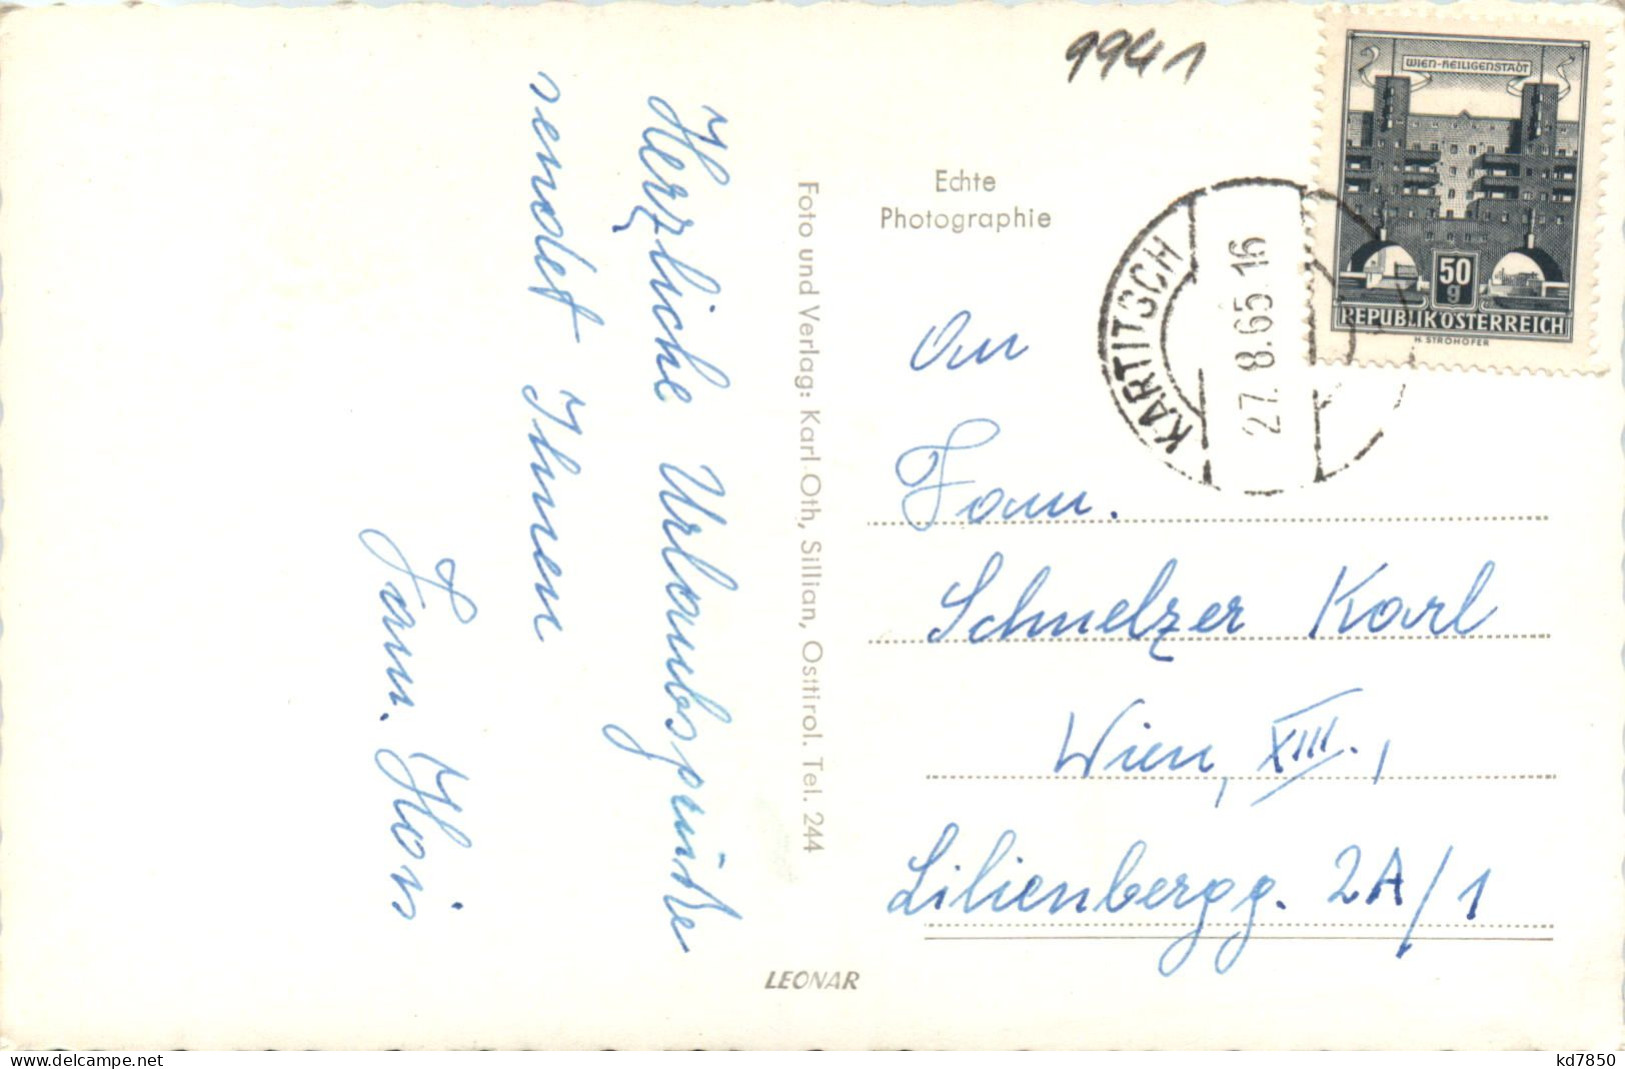 Herzliche Urlaubsgrüße
sendet Ihnen
Fam. Hois
Foto und Verlag: Karl Oth, Sillian, Osttirol. Tel. 244
LEONAR
9941
Echte
Photographie
KARTITSCH
27.8.65 16
WIEN-HEILIGENSTADT
50
g
REPUBLIK ÖSTERREICH
H. STROHOFER
An
Fam.
Schmelzer Karl
Wien, XIII.,
Lilienbergg. 2A/1
www.delcampe.net
kd7850